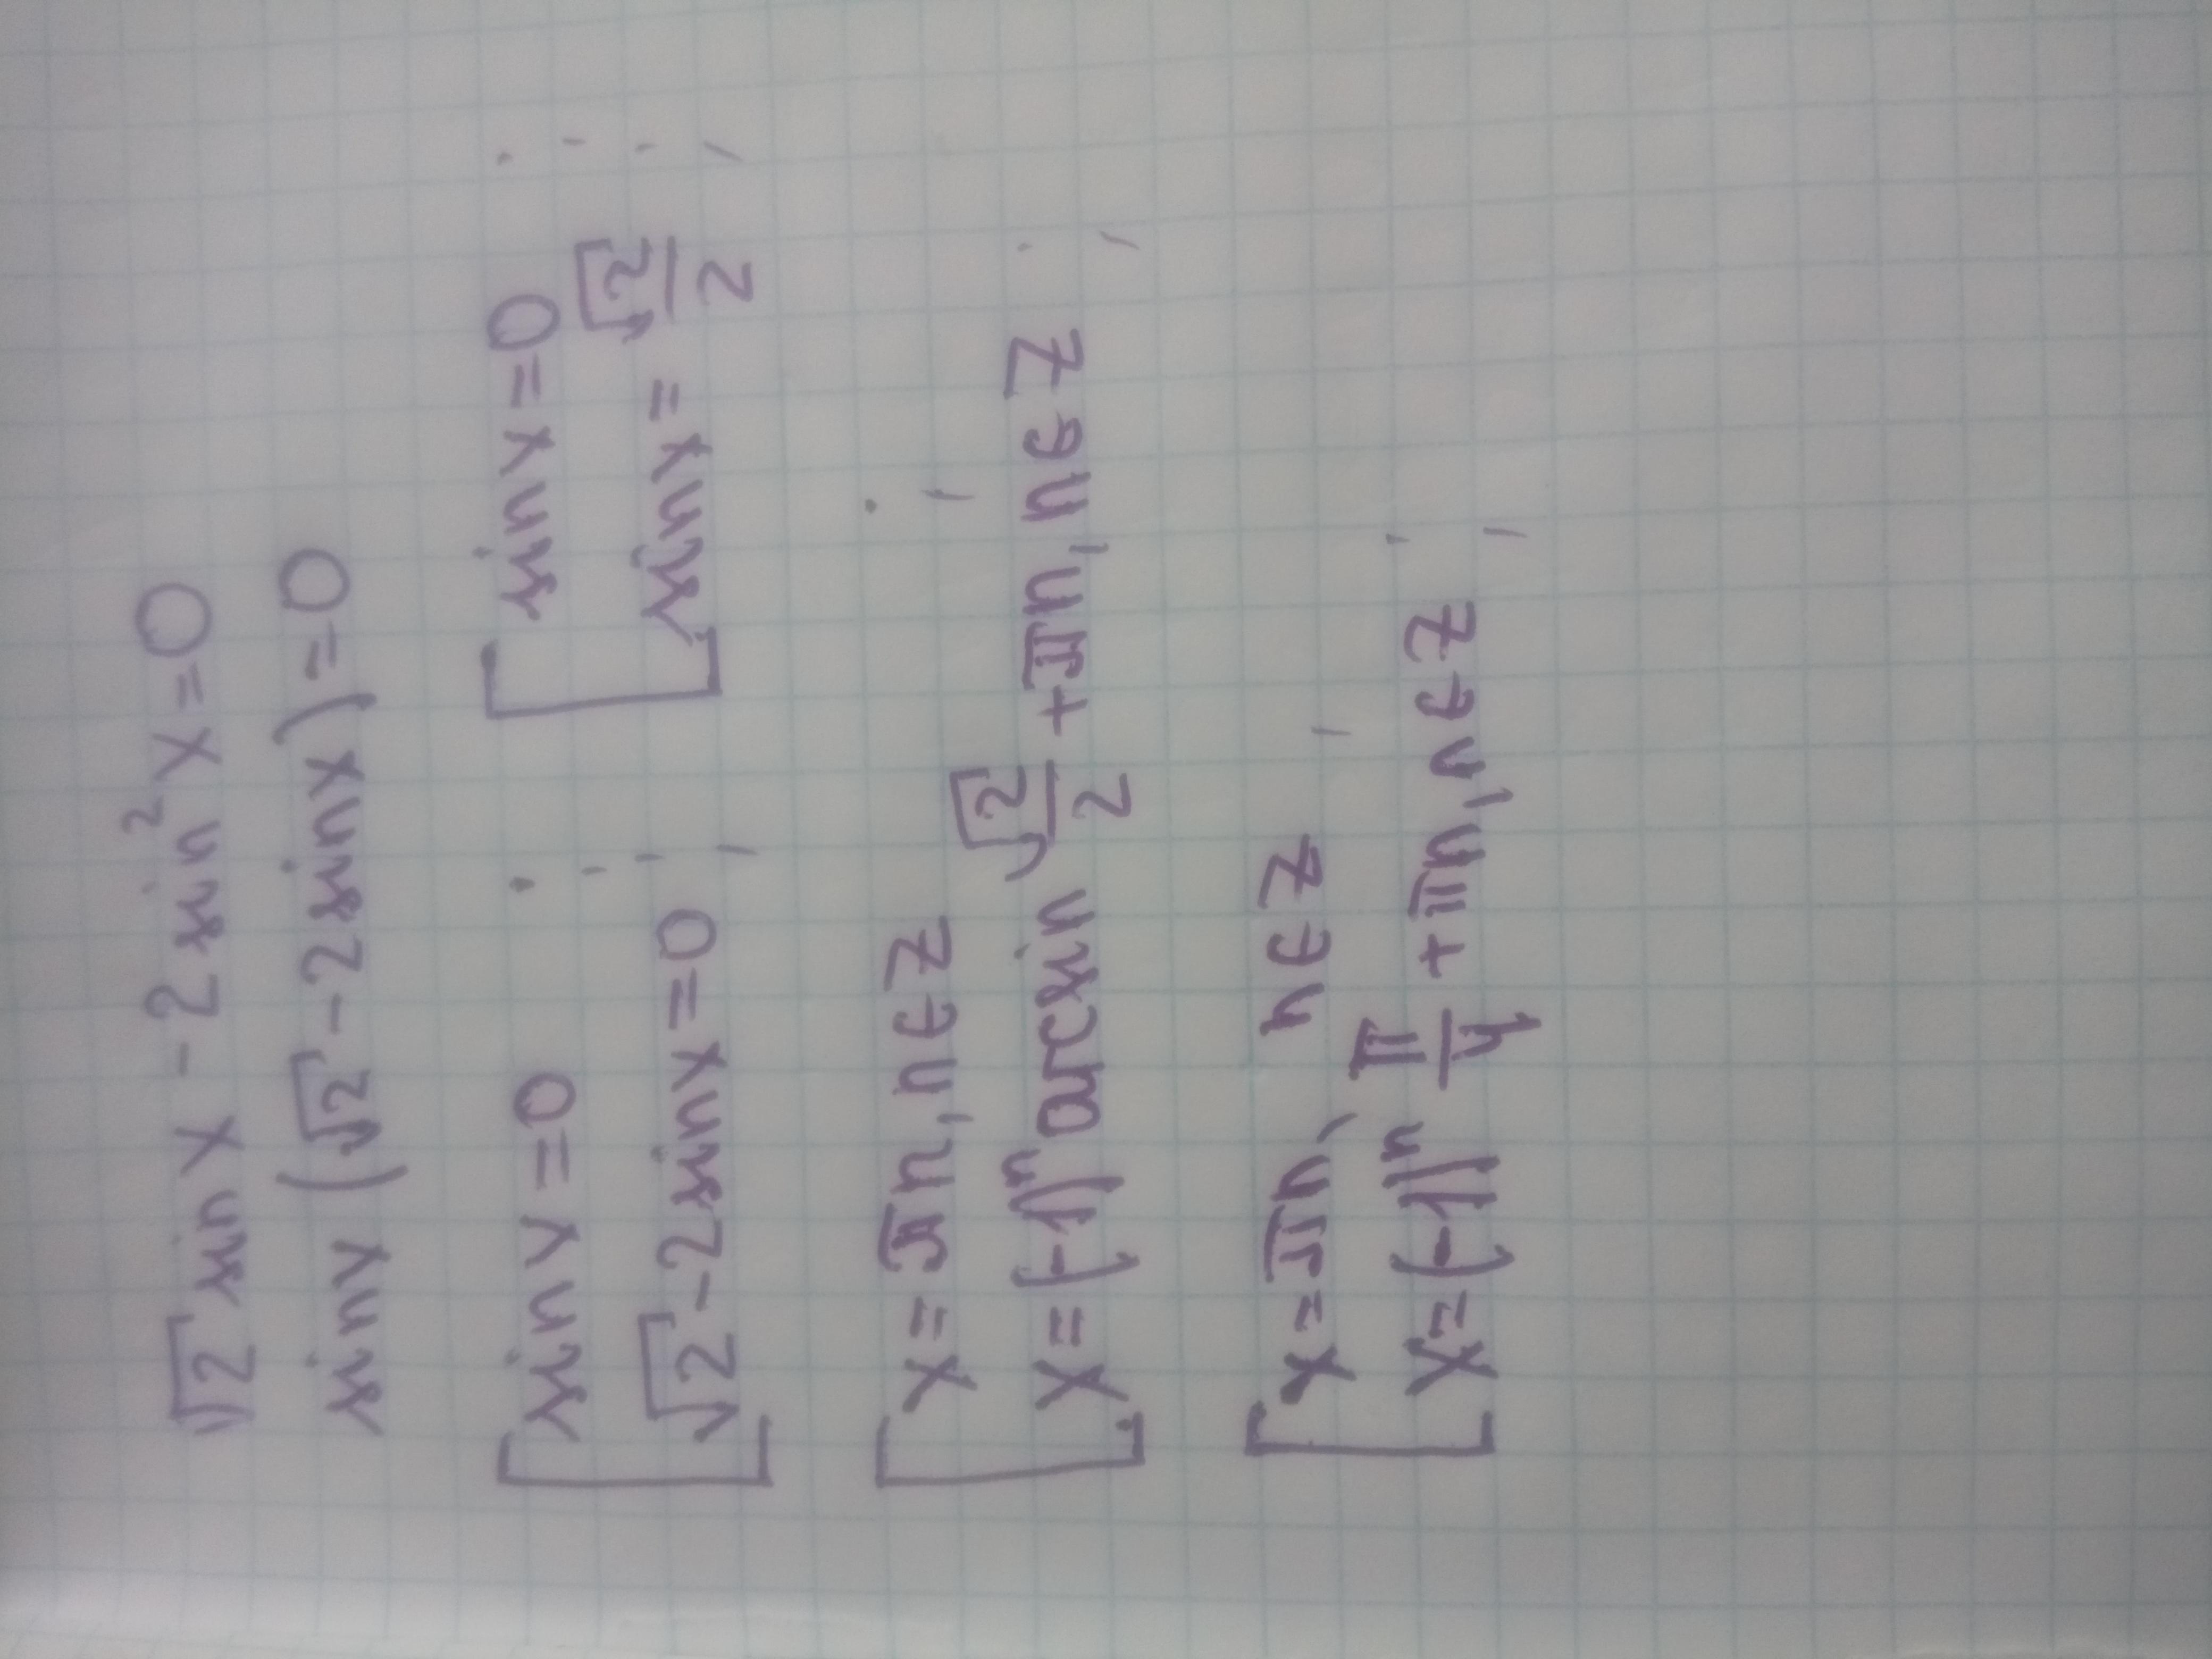 √2 sin x - 2 sin² x = 0
sin x (√2 - 2 sin x) = 0
[ sin x = 0 ; [ sin x = 0 ;
√2 - 2 sin x = 0 ; sin x = √2/2 ;
[ x = πn, n ∈ Z ;
x = (-1)ⁿ arcsin √2/2 + πn, n ∈ Z ;
[ x = πn, n ∈ Z ,
x = (-1)ⁿ π/4 + πn, n ∈ Z ;